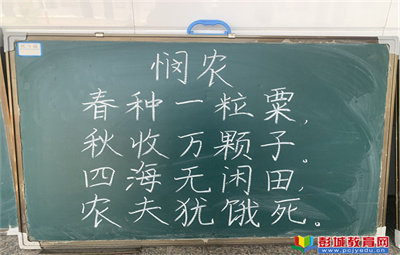 悯农
春种一粒粟，
秋收万颗子。
四海无闲田，
农夫犹饿死。
彭城教育网
www.pcjyedu.com